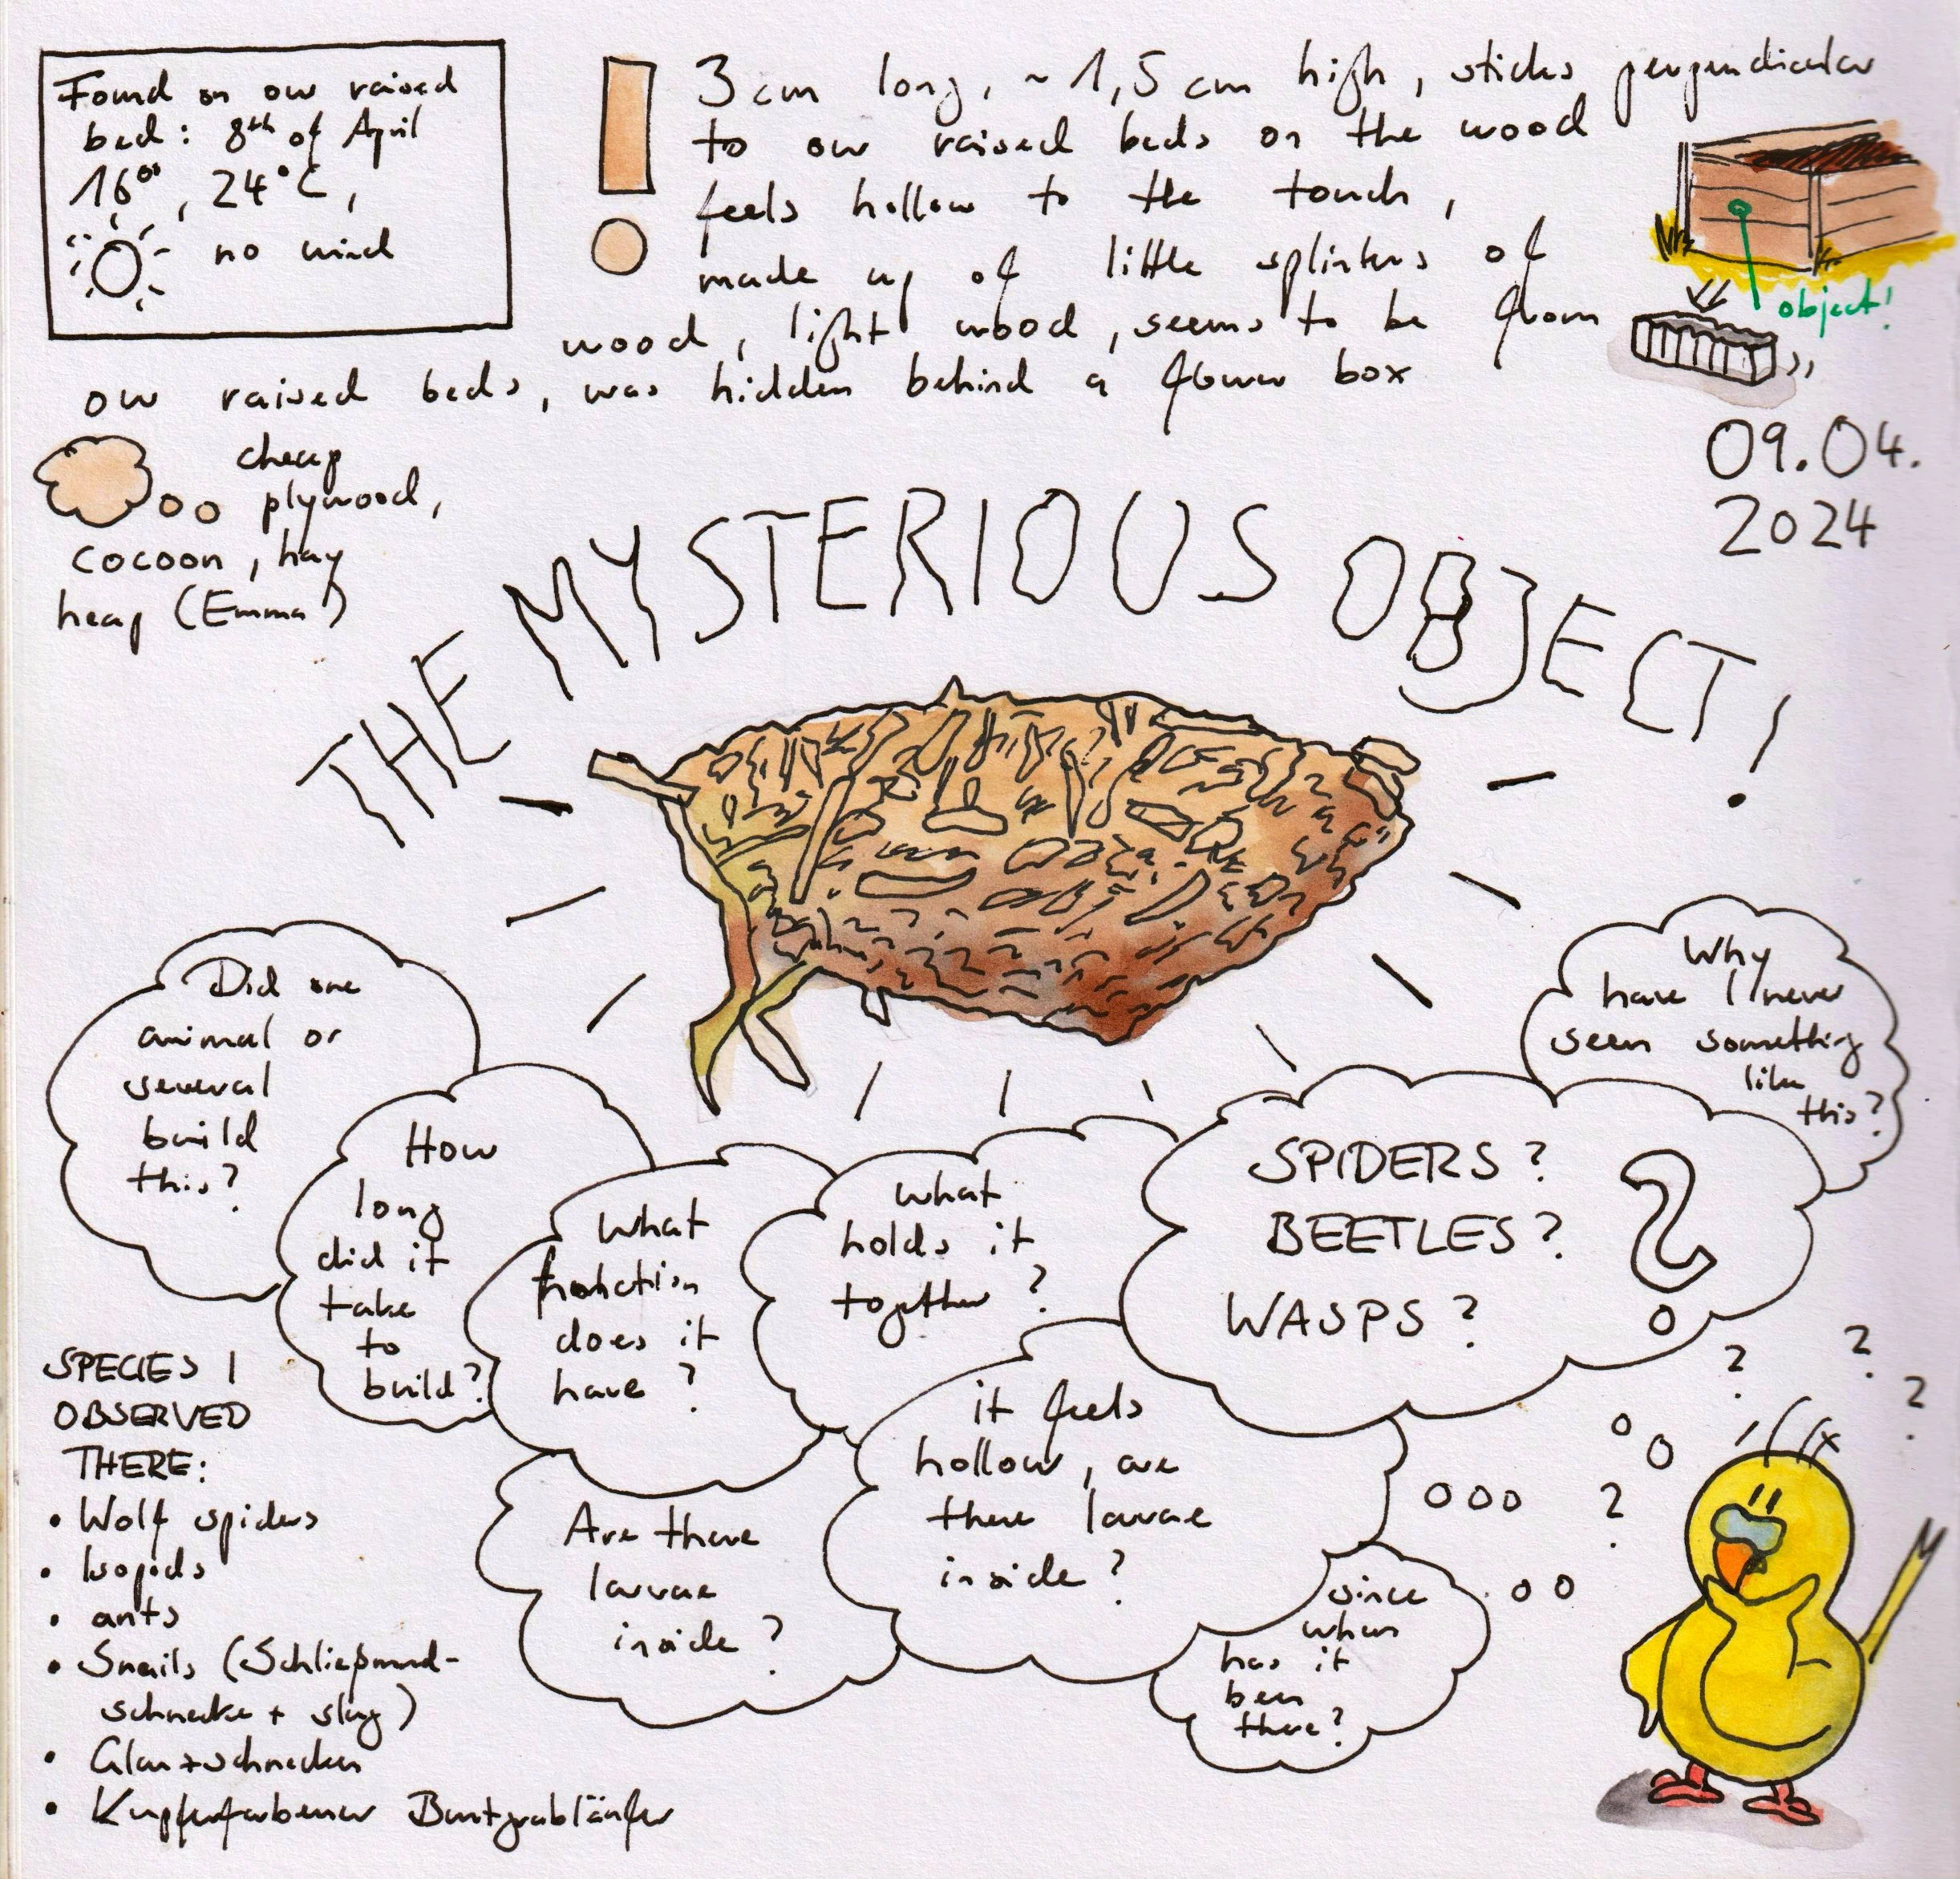 Found on our raised
bed: 8th of April
16⁰⁰, 24°C,
no wind
3 cm long, ~1,5 cm high, sticks perpendicular
to our raised beds on the wood
feels hollow to the touch,
made up of little splinters of
wood, light wood, seems to be from
our raised beds, was hidden behind a flower box
object!
09.04.
2024
cheap
plywood,
cocoon, hay
heap (Emma)
THE MYSTERIOUS OBJECT!
Did one
animal or
several
build
this?
How
long
did it
take
to
build?
What
function
does it
have?
What
holds it
together?
SPIDERS?
BEETLES?
WASPS?
?
Why
have I never
seen something
like
this?
Are there
larvae
inside?
it feels
hollow, are
there larvae
inside?
since
when
has it
been
there?
? ? ?
?
SPECIES I
OBSERVED
THERE:
• Wolf spiders
• Isopods
• ants
• Snails (Schließmund-
schnecke + slug)
• Glanzschnecken
• Kupferfarbener Buntgrabläufer